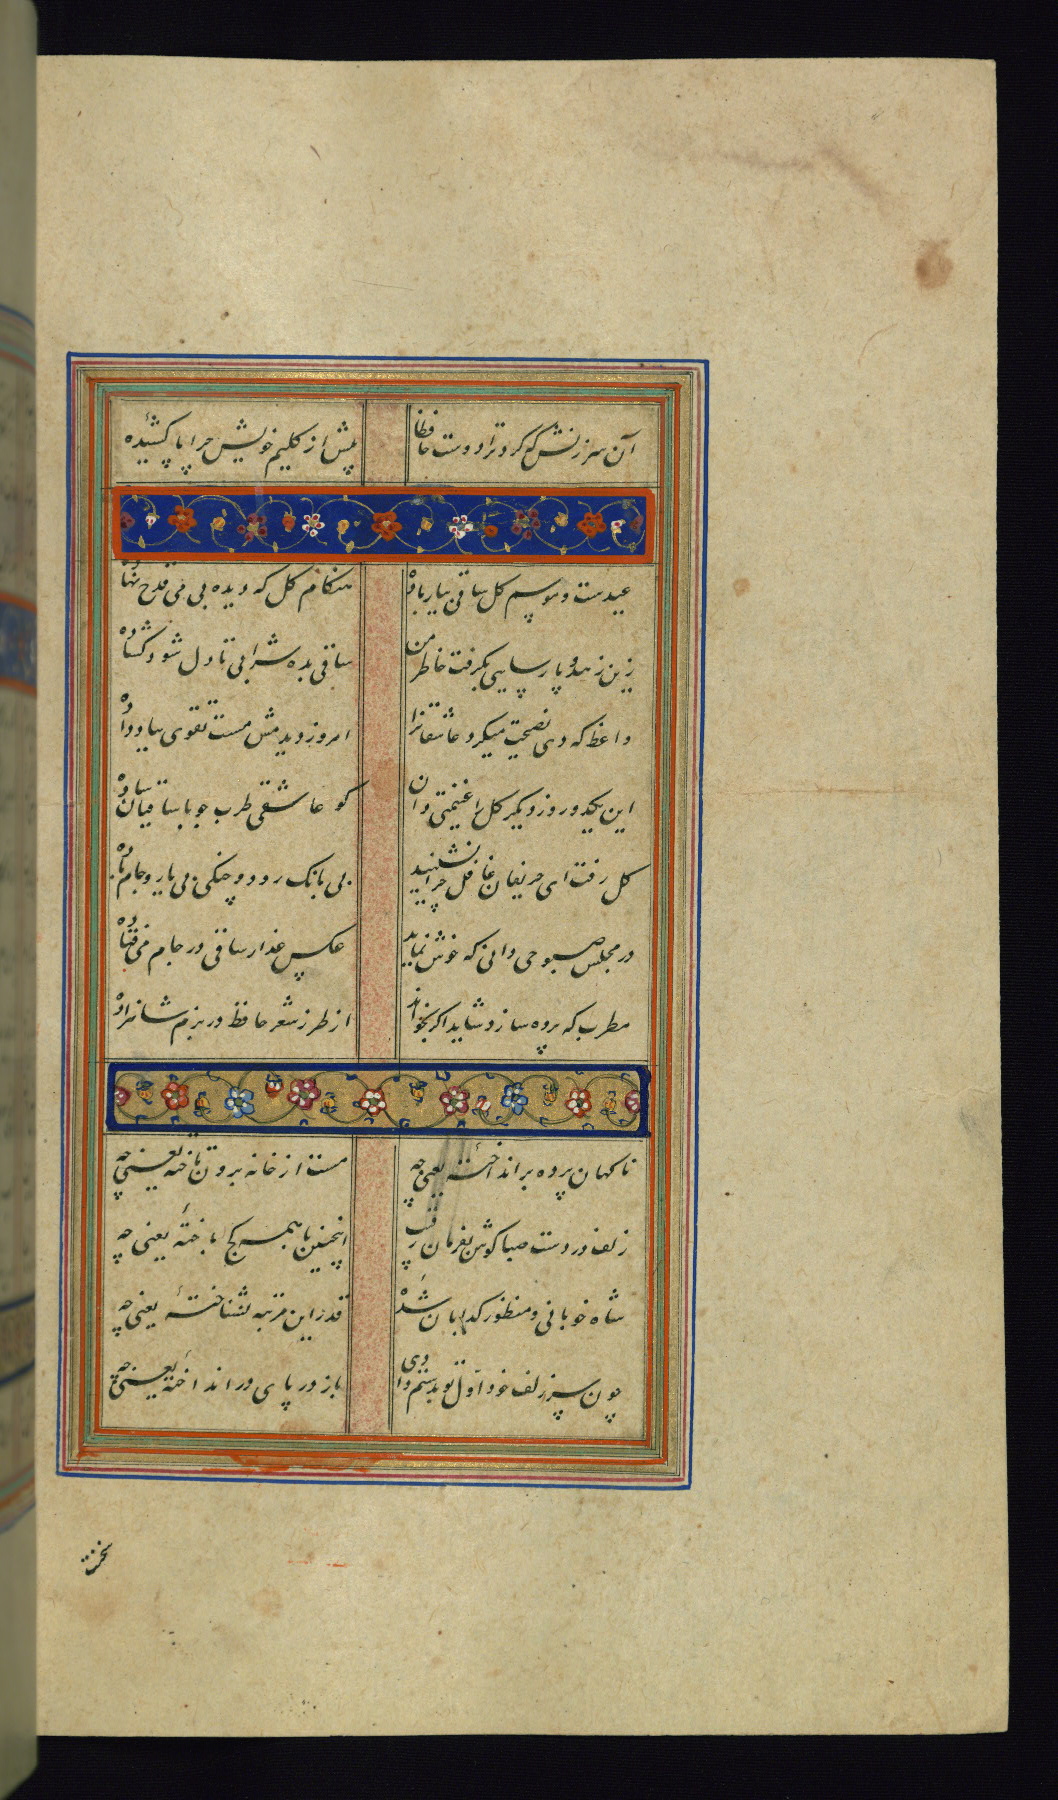 آن سرزنش که کرد ترا دوست حافظا بیش از کلیم خویش چرا پا کشیدهٔ
عیدست و موسم کل ساقی بیار باده هنکام کل که دیده بی می قدح نهاده
زین زهد و پارسایی بگرفت خاطر من ساقی بده شرابی تا دل شود کشاده
واعظ که دی نصیحت میکرد عاشقانرا امروز دیدمش مست تقوی بباد داده
این یکدو روز دیکر کل را غنیمتی دان کو عاشقی طرب جو با ساقیان ساده
کل رفت ای حریفان غافل چرا نشینید بی بانک رود و چنکی بی یار و جام باده
در مجلس صبوحی دانی که خوش نماید عکس عذار ساقی در جام می فتاده
مطرب که پرده سازد شاید اکر بخواند از طرز شعر حافظ در بزم شاهزاده
ناکهان پرده برانداختهٔ یعنی چه مست از خانه برون تاختهٔ یعنی چه
زلف در دست صبا کوش بفرمان رقیب اینچنین با همه کج باختهٔ یعنی چه
شاه خوبانی و منظور کدایان شدهٔ قدر این مرتبه نشناختهٔ یعنی چه
چون سر زلف خود اول تو بدستم دادی باز در پای در انداختهٔ یعنی چه